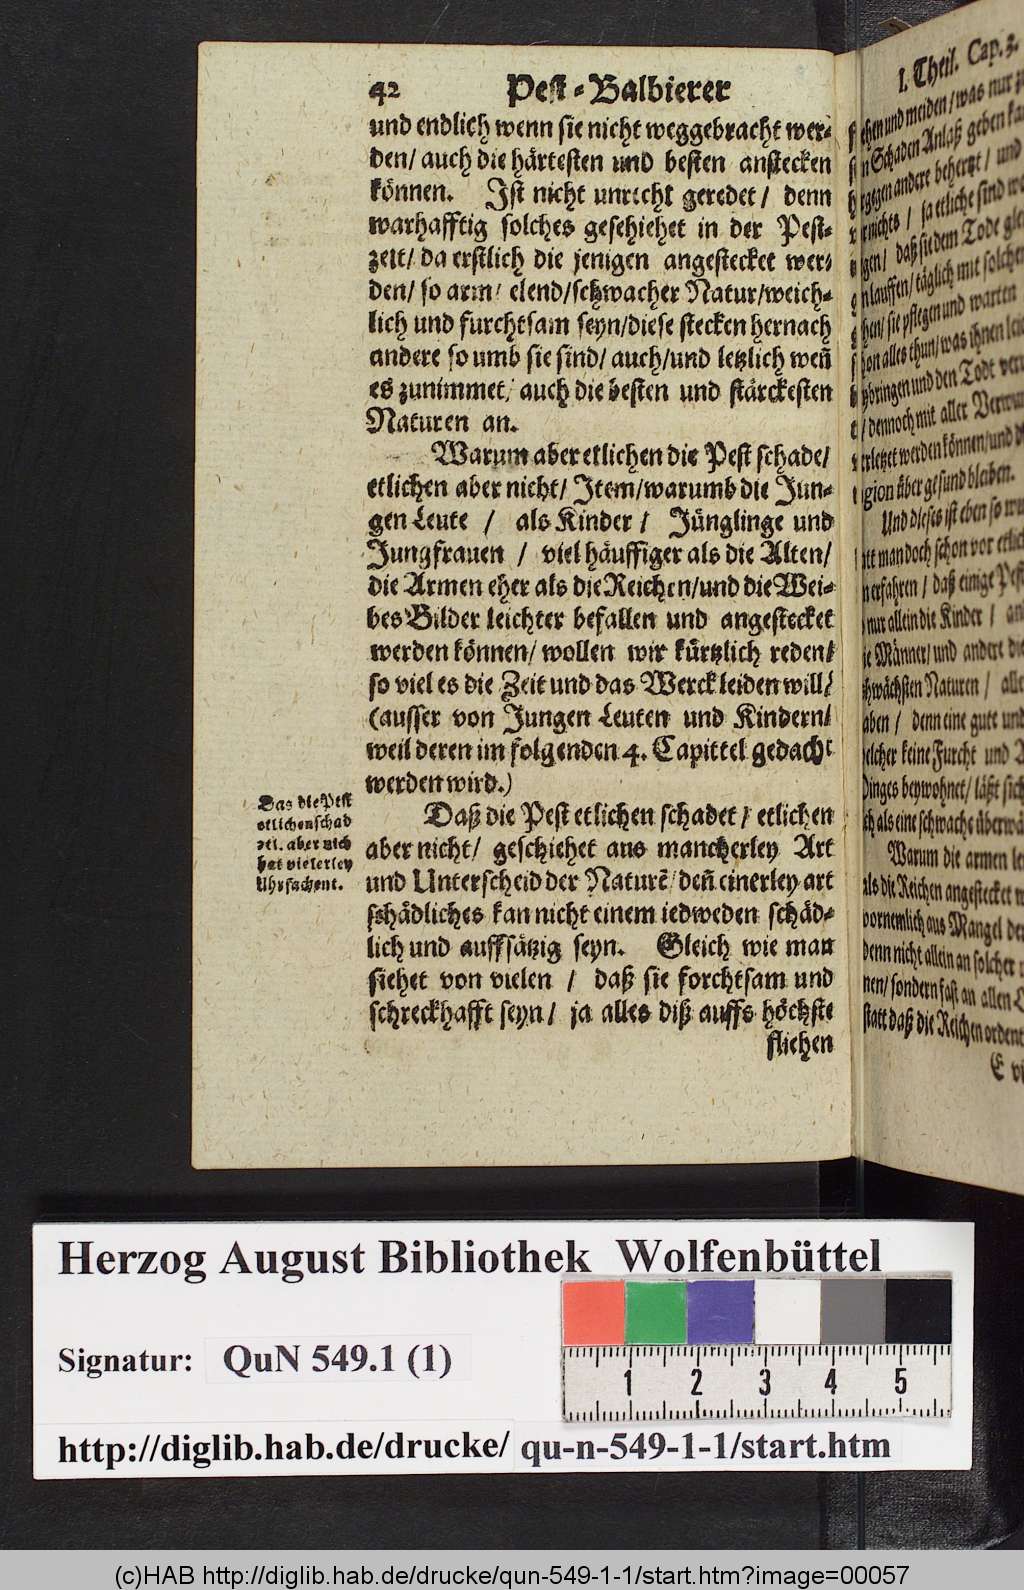 42 Pest-Balbierer
und endlich wenn sie nicht weggebracht wer-
den/ auch die härtesten und besten anstecken
können. Ist nicht unrecht geredet/ denn
warhafftig solches geschiehet in der Pest-
zeit/ da erstlich die jenigen angestecket wer-
den/ so arm/ elend/schwacher Natur/weich-
lich und furchtsam seyn/diese stecken hernach
andere so umb sie sind/ auch/und letzlich weñ
es zunimmet/ auch die besten und stärckesten
Naturen an.
Warum aber etlichen die Pest schade/
etlichen aber nicht/ Item/warumb die Jun-
gen Leute / als Kinder / Jünglinge und
Jungfrauen / viel häuffiger als die Alten/
die Armen eher als die Reichen/und die Wei-
bes Bilder leichter befallen und angestecket
werden können/ wollen wir kürtzlich reden/
so viel es die Zeit und das Werck leiden will/
(ausser von Jungen Leuten und Kindern/
weil deren im folgenden 4. Capittel gedacht
werden wird.)
Das die Pest
etlichen schad
etl. aber nich
hat vielerley
Uhrsachent.
Daß die Pest etlichen schadet / etlichen
aber nicht/ geschiehet aus mancherley Art
und Unterscheid der Naturē/ deñ einerley art
schädliches kan nicht einem iedweden schäd-
lich und auffsätzig seyn. Gleich wie man
siehet von vielen / daß sie forchtsam und
schreckhafft seyn/ ja alles diß auffs höchste
fliehen
I. Theil. Cap. 3.
und meiden/ was nur
Schaden Anlaß geben
andere behertzt/ und
nichts / ja etliche sind
daß sie dem Todt
lauffen/ täglich mit solchen
sie pflegen und warten
alles thun/ was ihnen
bringen und den Todt
/ dennoch mit aller
werden können/ und
über gesund bleiben.
Und dieses ist eben so
man doch schon vor
erfahren / daß einige Pest
nur allein die Kinder /
Männer/ und andere die
Naturen /
denn eine gute und
keine Furcht und
Dinges beywohnet/ läßt sich
als eine schwache
Warum die armen
als die Reichen angestecket
vornemlich aus Mangel
denn nicht allein an solcher
nen/ sondern fast an allen
statt daß die Reichen
E
Herzog August Bibliothek Wolfenbüttel
Signatur: QuN 549.1 (1)
1 2 3 4 5
http://diglib.hab.de/drucke/ qu-n-549-1-1/start.htm
(c)HAB http://diglib.hab.de/drucke/qun-549-1-1/start.htm?image=00057